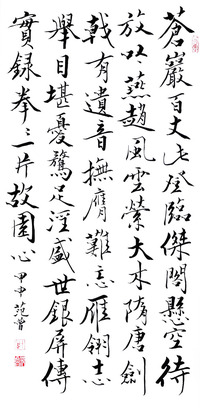 蒼巖百丈此登臨傑閣懸空待
放吟燕趙風雲縈大木隋唐劍
戟有遺音撫膺難忘雁翎志
舉目堪憂驚足淫盛世銀屏傳
實錄拳〻一片故園心 甲申 范曾